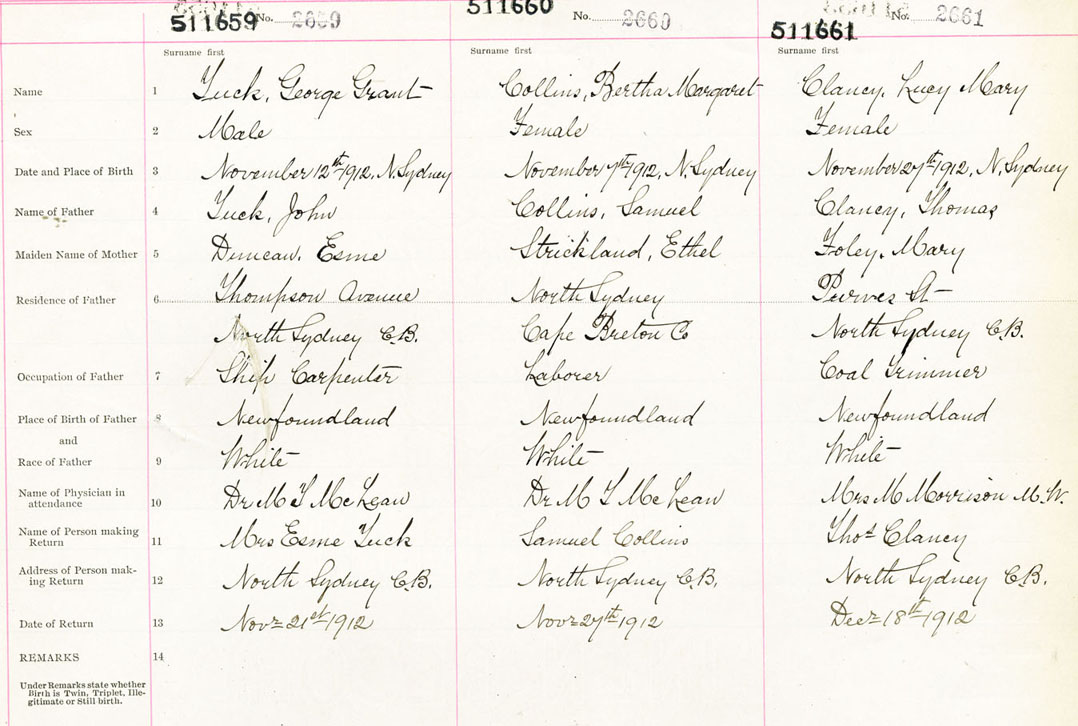 511659 No. 2659
511660 No. 2660
511661 No. 2661
Surname first Surname first Surname first
Name 1 Tuck, George Grant Collins, Bertha Margaret Clancy, Lucy Mary
Sex 2 Male Female Female
Date and Place of Birth 3 November 12th 1912, N. Sydney November 7th 1912, N. Sydney November 27th 1912, N. Sydney
Name of Father 4 Tuck, John Collins, Samuel Clancy, Thomas
Maiden Name of Mother 5 Duncan, Esme Strickland, Ethel Foley, Mary
Residence of Father 6 Thompson Avenue North Sydney Purves St
North Sydney C.B. Cape Breton Co North Sydney C.B.
Occupation of Father 7 Ship Carpenter Laborer Coal Trimmer
Place of Birth of Father 8 Newfoundland Newfoundland Newfoundland
and
Race of Father 9 White White White
Name of Physician in
attendance 10 Dr M T McLean Dr M T McLean Mrs M Morrison M.W.
Name of Person making
Return 11 Mrs Esme Tuck Samuel Collins Thos Clancy
Address of Person mak-
ing Return 12 North Sydney C.B. North Sydney C.B. North Sydney C.B.
Date of Return 13 Novr 21st 1912 Novr 27th 1912 Decr 18th 1912
REMARKS 14
Under Remarks state whether
Birth is Twin, Triplet, Ille-
gitimate or Still birth.